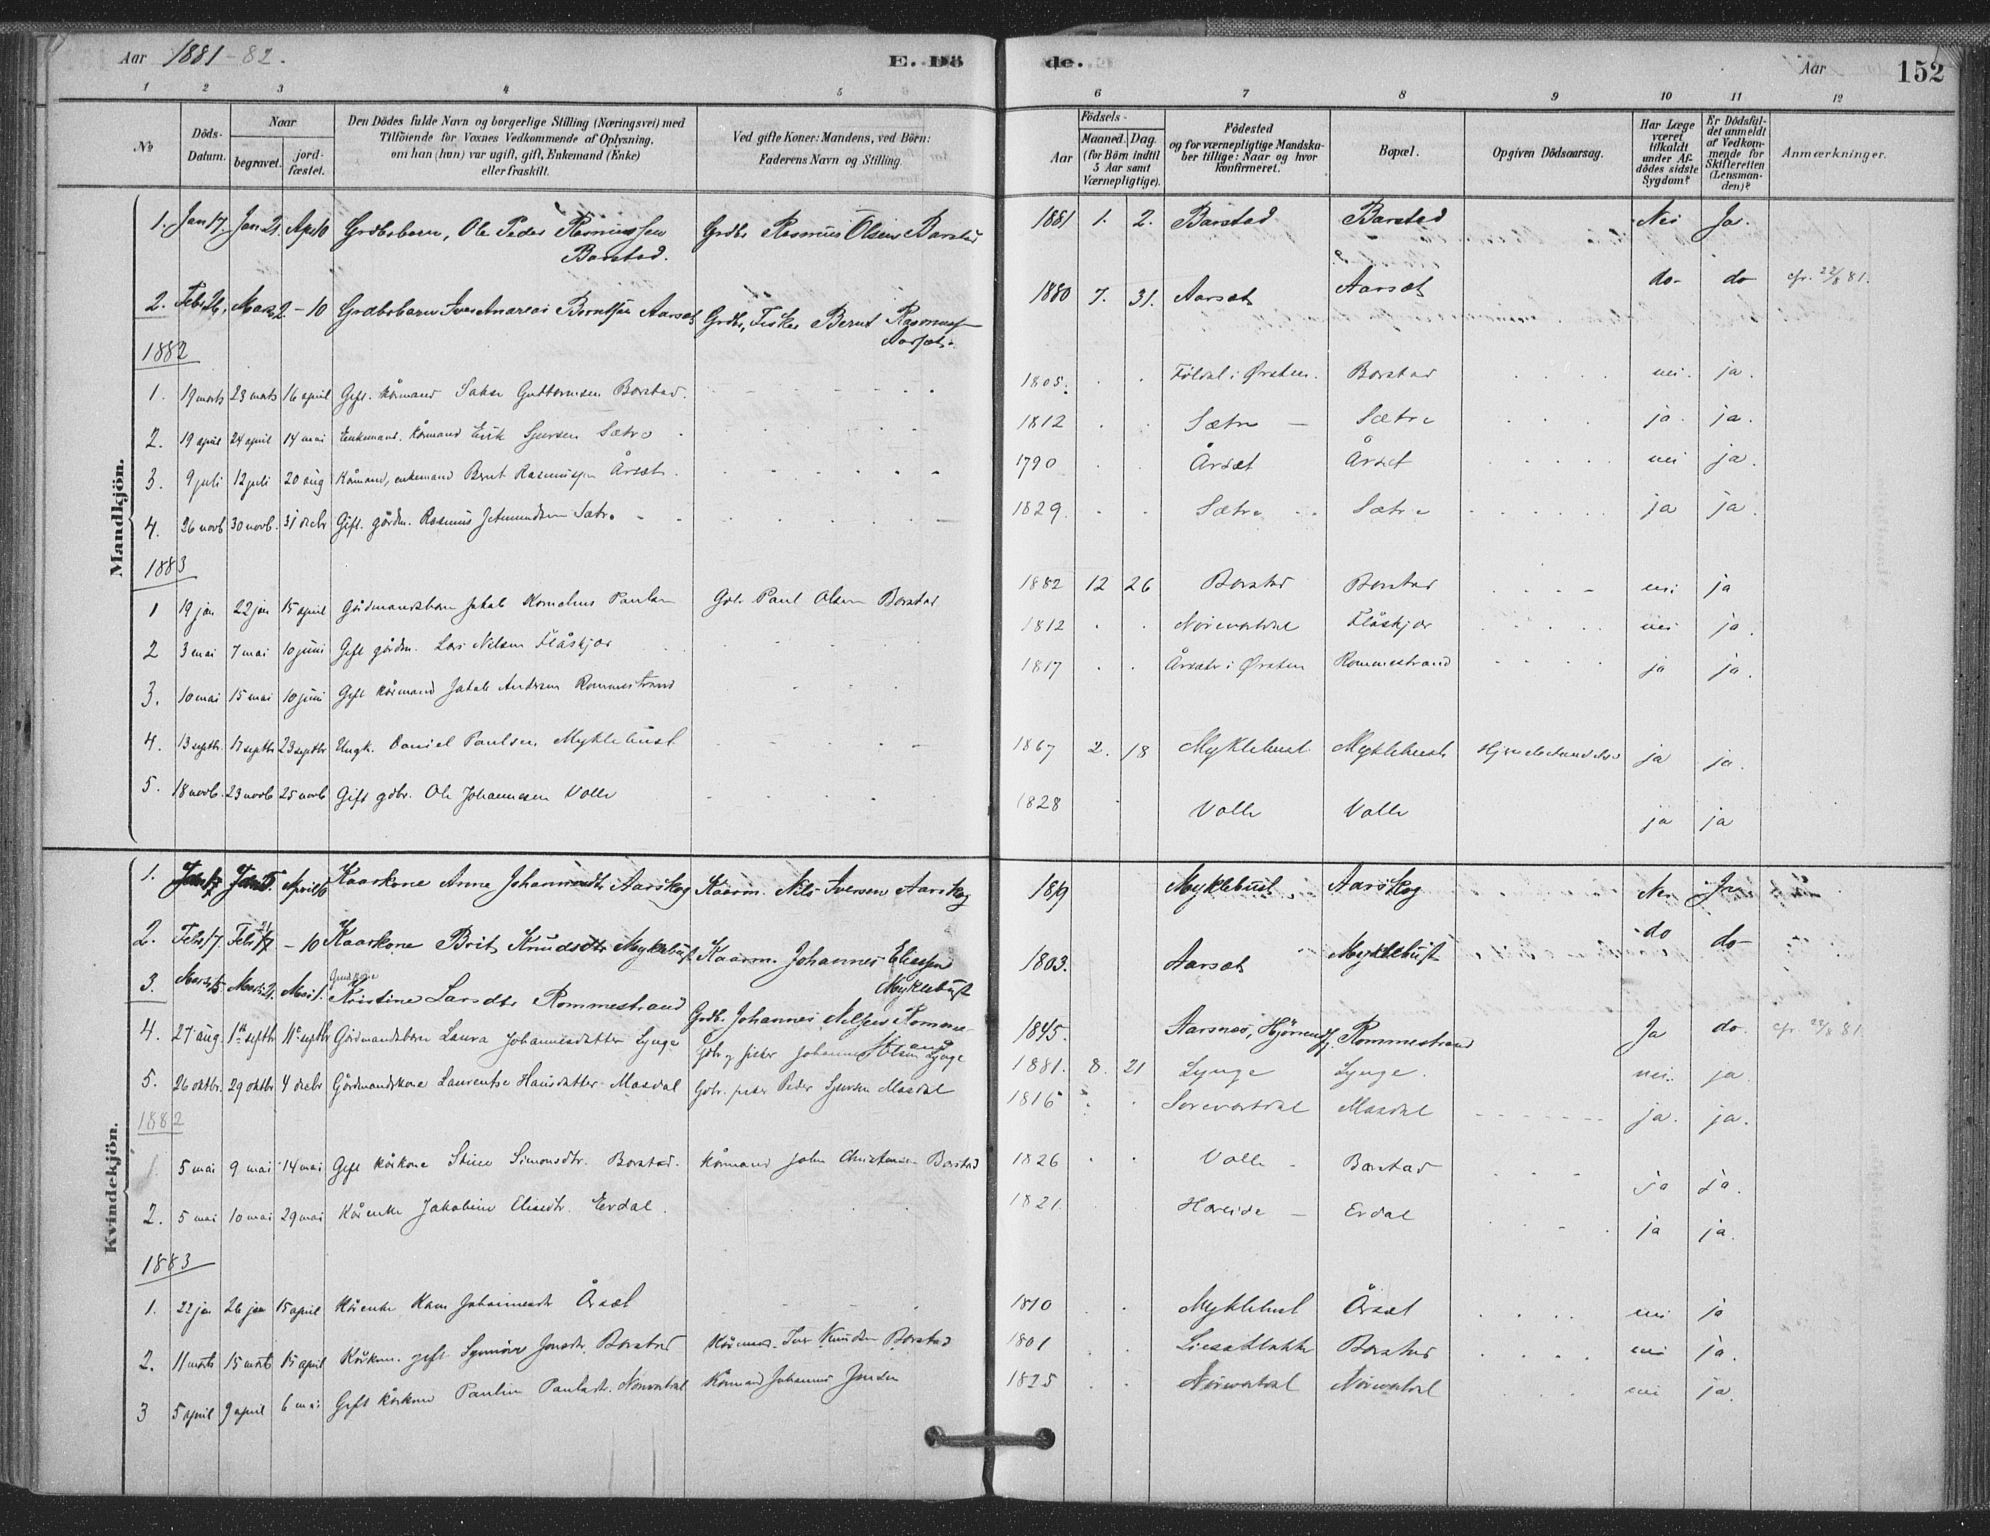 Aar 1881-82. E. Dö de. Aar 152
1 2 3 4 5 6 7 8 9 10 11 12
No Döds-Datum. Naar begravet. jordfæstet. Den Dödes fulde Navn og borgerlige Stilling (Næringsvei) med Tilföiende for Voxnes Vedkommende af Oplysning, om han (hun) var ugift, gift, Enkemand (Enke) eller fraskilt. Ved gifte Koner: Mandens, ved Börn: Faderens Navn og Stilling. Födsels- Aar Maaned. Dag. (for Börn indtil 5 Aar samt Værnepligtige). Födested og for værnepligtige Mandskaber tillige: Naar og hvor konfirmeret. Bopæl. Opgiven Dödsaarsag. Har Læge været tilkaldt under Afdödes sidste Sygdom? Er Dödsfaldet anmeldt af Vedkommende for Skifteretten (Lensmanden)? Anmærkninger.
Mandkjön.
1. Jan 17. Jan 21. Apr 10 Grdbsbarn, Ole Peder Rasmussen Barstad. Grdbr Rasmus Olsen Barstad 1881 1. 2. Barstad Barstad Nei Ja.
2. Febr 26, Mars 2 - 10 Grdbsbarn Iver Andreas Berntsen Aarsæt Grdbr, Fisker Bernt Rasmuss Aarsæt. 1880 7. 31. Aarsæt Aarsæt do- do cfr. 22/8 81.
1882
1. 19 marts 23 marts 16 april Gift. kårmand Sakse Guttormsen Barstad. 1805. Follol i Ørsten. Barstad nei. ja.
2. 19 april 24 april 14 mai Enkemand. kårmand Erik Sjursen Sætre 1812 Sætre Sætre ja. ja.
3. 9 juli 12 juli 20 aug Kårmand, enkemand Bernt Rasmussen Årsæt. 1790 Årsæt Årsæt nei ja.
4. 26 novb 30 novb. 31 decbr Gift. gårdm. Rasmus Jetmundsen Sætre 1829. Sætre Sætre ja ja.
1883
1 19 jan 22 jan 15 april Gårdmandsbarn Jakob Kornelius Paulsen Gbr. Paul Olsen Barstad 1882 12 26 Barstad Barstad nei ja
2 3 mai 7 mai 10 juni Gift gårdm. Lars Nilsen Flåskjær 1812 Norevartdal Flåskjær nei ja.
3. 10 mai 15 mai 10 juni Gift kårmand Jakob Andersen Rommestrand 1817 Årsæter i Ørsten Rommestrand ja ja.
4. 13 septbr. 17 septbr 23 septbr Ungk. Daniel Paulsen Myklebust 1867 2. 18 Myklebust Myklebust ja ja.
5. 18 novb. 23 novb 25 novb Gift gdbr. Ole Johannesen Valle 1828 Valle Valle ja ja
Kvindekjön.
1. April 10 Kaarkone Anne Johannesdtr Aarskog Kaarm. Nils Iversen Aarskog 1819 Myklebust Aarskog Nei Ja
2. Febr 17 - 10 Kaarkone Brit Knudsdtr Myklebust Kaarm. Johannes Eliassen Myklebust 1803. Aarsæt Myklebust do do-
3. Mars 15 Mars 21. Mai 1. Grdkone Kristine Larsdtr Rommestrand Grdb. Johannes Nilsen Rommestrand 1845. Aarsnes, Hjörendfj. Rommestrand Ja do. cfr. 22/8 81
4. 27 aug. 1ste septbr 11te septbr Gårdmandsbarn Laura Johannesdatter Lynge Gdbr og fisker Johannes Olsen Lynge 1881. 8. 21 Lynge Lynge. nei. ja.
5. 26 oktbr. 29 oktbr 4 decbr Gårdmandskone Laurentse Hansdatter Masdal Gdbr. fisker Peder Sjursen Masdal 1816 Sørevartdal Masdal ja. ja.
1882
1. 5 mai 9 mai 14 mai Gift kårkone Stine Simonsdtr. Barstad. Kårmand John Christensen Barstad 1826 Valle Barstad ja ja.
2. 5 mai 10 mai 29 mai Kårenke Jakobine Eliasdtr. Erdal. 1821 Hareide Erdal ja ja.
1883
1. 22 jan 26 jan 15 april Kårenke Kari Johannesdtr Årsæt 1810 Myklebust Årsæt nei ja
2. 11 marts 15 marts 15 april Kårkone. gift Synnøve Jonsdtr. Barstad Kårmand. Iver Knudsen Barstad 1801 Barstad nei ja.
3 5 april 9 april 6 mai Gift kårkone Pauline Paulsdtr. Norevartdal Kårmand Johannes Jensen 1825 Norevartdal Norevartdal nei ja.